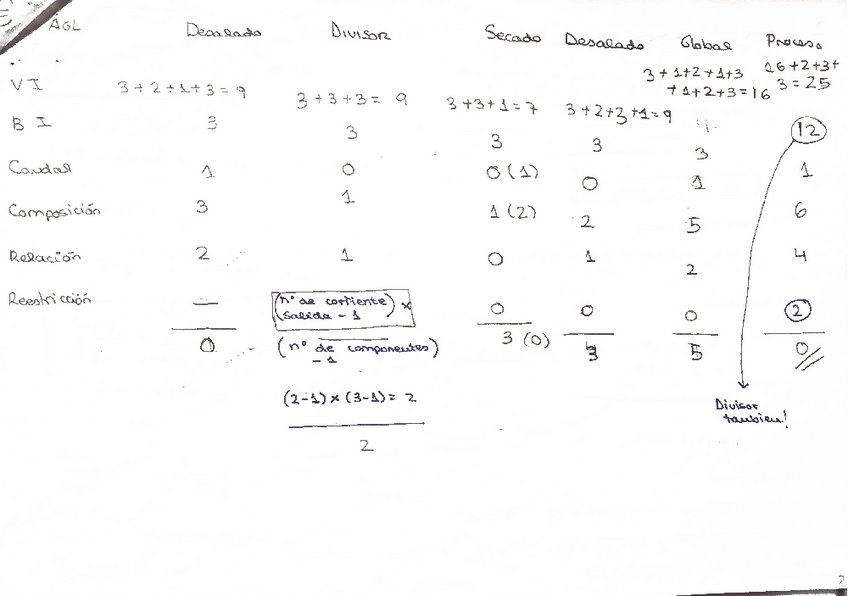 AGL Desalado Divisor Secado Desalado Global Proceso
VI 3+2+1+3=9 3+3+3= 9 3+3+1=7 3+2+3+1=9 3+1+2+1+3 +1+2+3=16 16+2+3+ 3=25
BI 3 3 3 3 3 12
Caudal 1 0 0(1) 0 1 1
Composición 3 1 1(2) 2 5 6
Relación 2 1 0 1 2 4
Reestricción — (nº de corriente salida - 1) x 0 0 0 2
(nº de componentes - 1)
0 3 (0) 3 5 0
(2-1)x(3-1)= 2
2
Divisor
tambien!